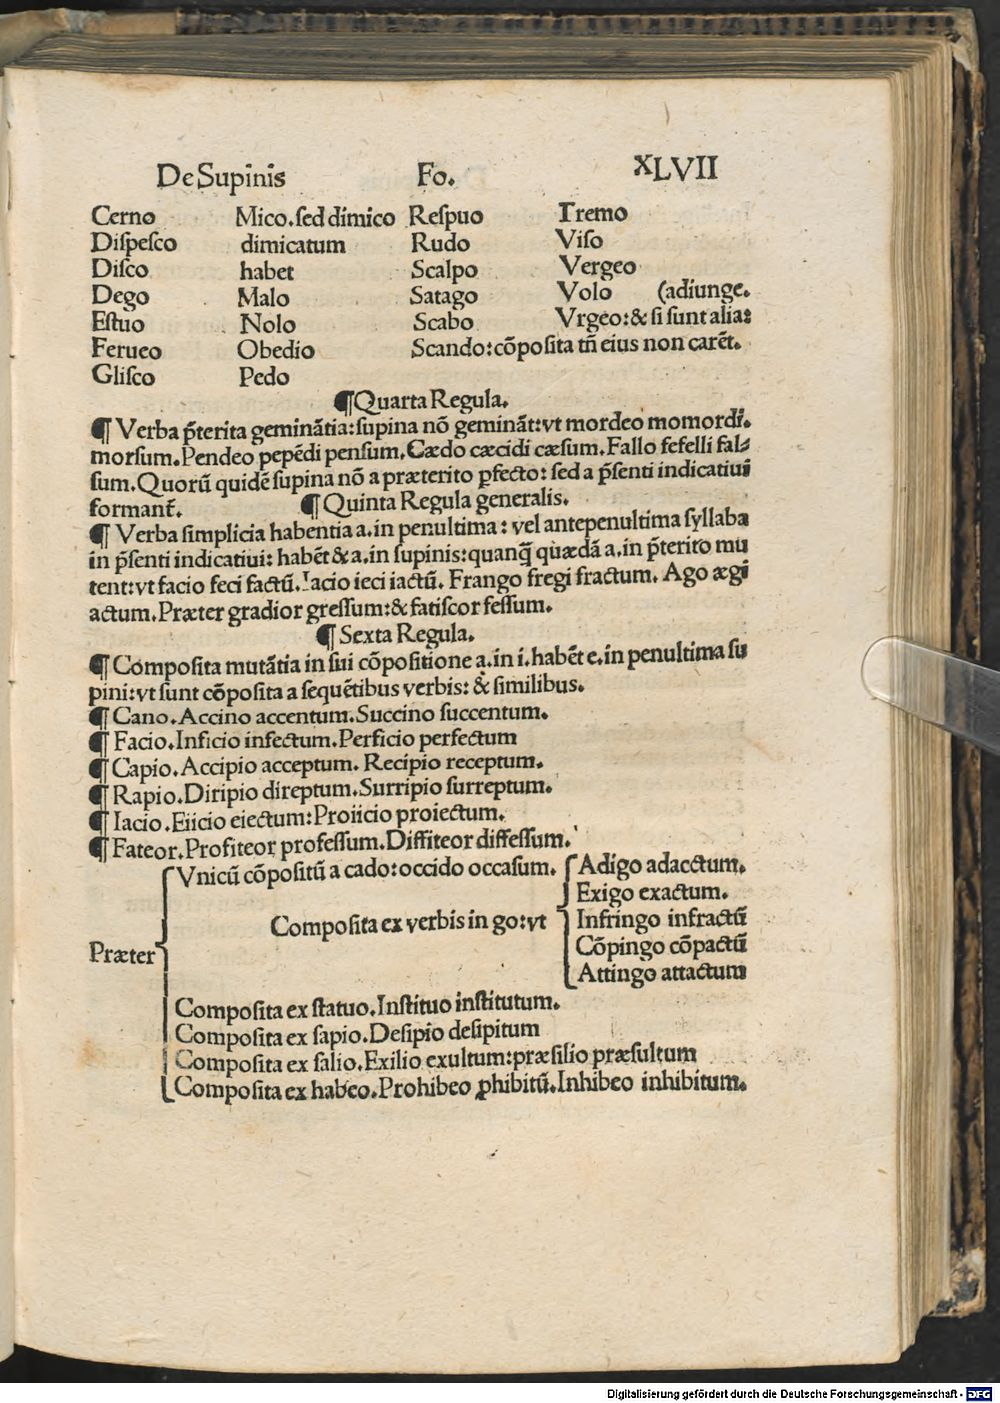 De Supinis Fo. XLVII
Cerno Mico.sed dimico Reſpuo Tremo
Diſpeſco dimicatum Rudo Viſo
Diſco habet Scalpo Vergeo
Dego Malo Satago Volo (adiunge.
Eſtuo Nolo Scabo Vrgeo:& ſi ſunt alia:
Ferueo Obedio Scando:cōpoſita tn̄ eius non carēt.
Gliſco Pedo
¶Quarta Regula.
¶ Verba p̄terita geminātia:ſupina nō gemināt:vt mordeo momordi.
morſum.Pendeo pepēdi penſum.Cædo cæcidi cæſum.Fallo fefelli fal⸗
ſum.Quorū quidē ſupina nō a præterito ꝑfecto: ſed a p̄ſenti indicatiui
formant̄. ¶Quinta Regula generalis.
¶ Verba ſimplicia habentia a.in penultima: vel antepenultima ſyllaba
in p̄ſenti indicatiui: habēt & a.in ſupinis:quanq̄ quædā a.in p̄terito mu
tent:vt facio feci factū.Iacio ieci iactū. Frango fregi fractum. Ago ægi
actum.Præter gradior greſſum:& fatiſcor feſſum.
¶ Sexta Regula.
¶Compoſita mutātia in ſui cōpoſitione a.in i.habēt e.in penultima ſu
pini:vt ſunt cōpoſita a ſequētibus verbis: & ſimilibus.
¶ Cano.Accino accentum.Succino ſuccentum.
¶ Facio.Inficio infectum.Perficio perfectum
¶ Capio.Accipio acceptum. Recipio receptum.
¶ Rapio.Diripio direptum.Surripio ſurreptum.
¶ Iacio.Eiicio eiectum:Proiicio proiectum.
¶ Fateor.Profiteor profeſſum.Diffiteor diffeſſum.
Vnicū cōpoſitū a cado:occido occaſum. Adigo adactum.
Exigo exactum.
Compoſita ex verbis in go:vt Infringo infractū
Præter Cōpingo cōpactū
Attingo attactum
Compoſita ex ſtatuo.Inſtituo inſtitutum.
Compoſita ex ſapio.Deſipio deſipitum
Compoſita ex ſalio.Exilio exultum:præſilio præſultum
Compoſita ex habeo.Prohibeo ꝓhibitū.Inhibeo inhibitum.
Digitalisierung gefördert durch die Deutsche Forschungsgemeinschaft - DFG